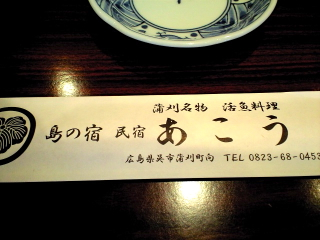 蒲刈名物 活魚料理
島の宿 民宿 あこう
広島県呉市蒲刈町向 TEL 0823-68-0453